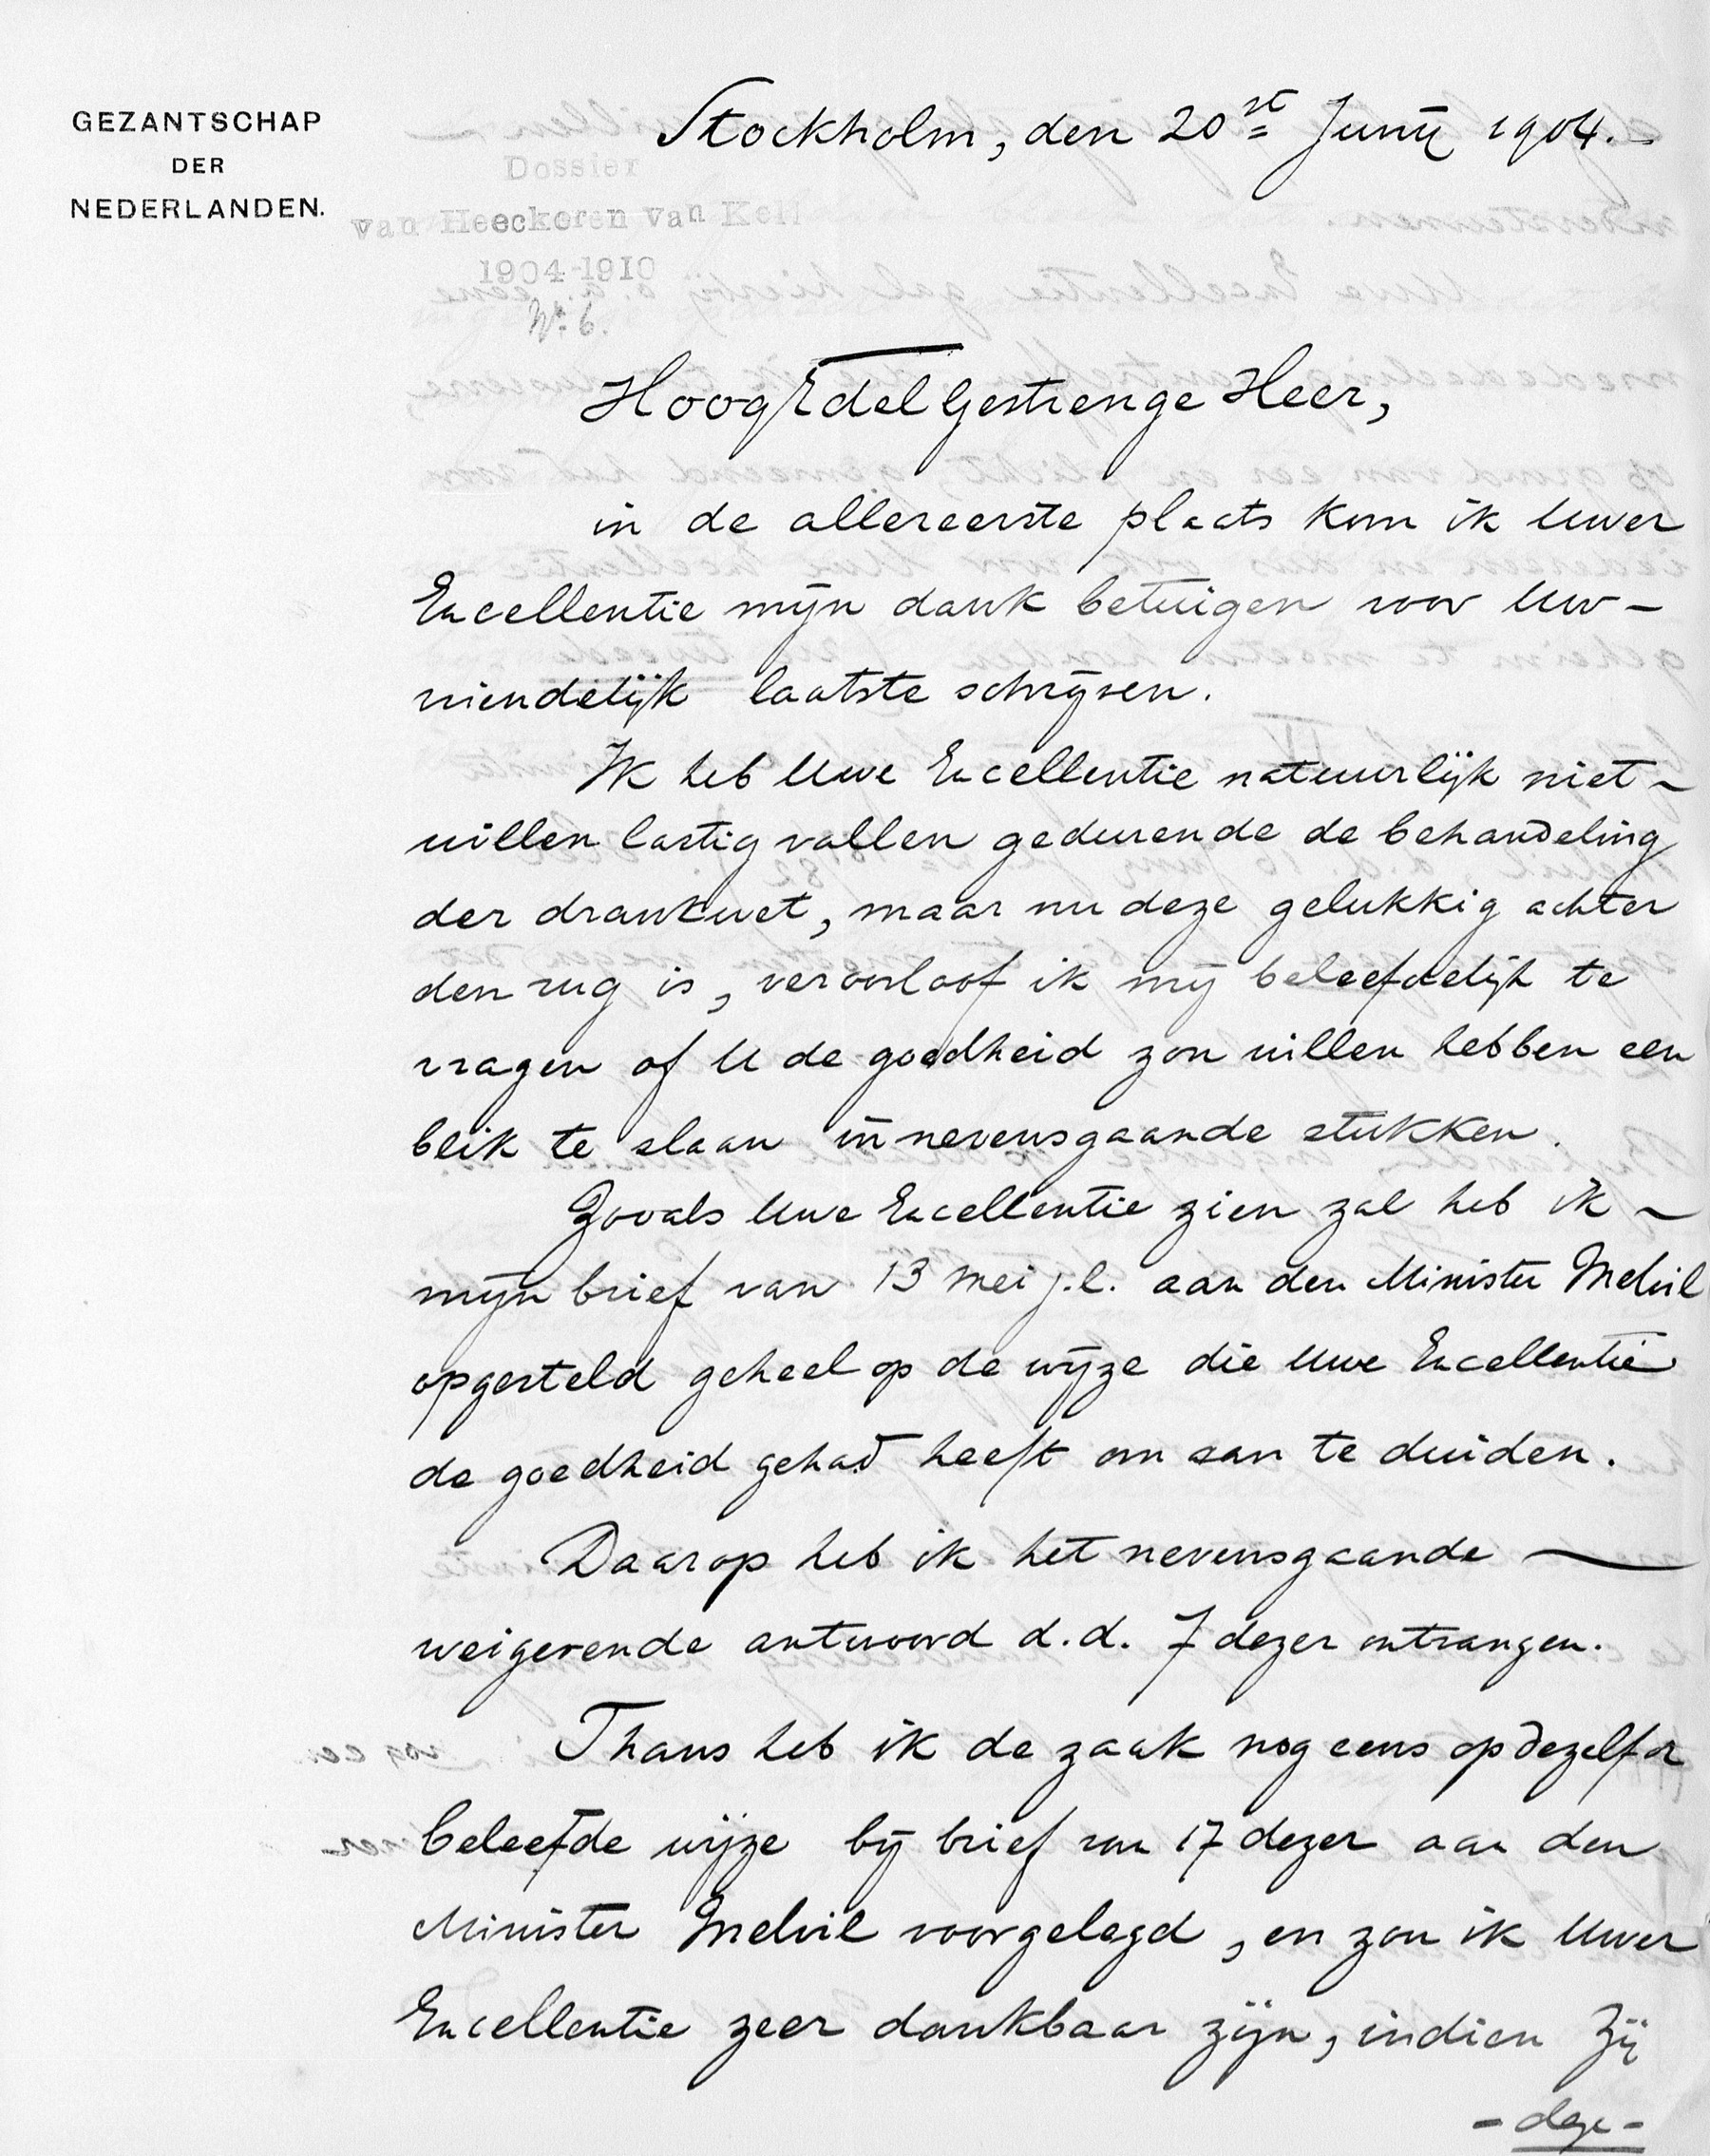 GEZANTSCHAP
DER
NEDERLANDEN.
Stockholm, den 20st Junij 1904.
Dossier
van Heeckeren van Kell
1904-1910
No. 6.
HoogEdelGestrenge Heer,
in de allereerste plaats kom ik Uwer
Excellentie mijn dank betuigen voor Uw -
vriendelijk laatste schrijven.
Ik heb Uwe Excellentie natuurlijk niet -
willen lastig vallen gedurende de behandeling
der drankwet, maar nu deze gelukkig achter
den rug is, veroorloof ik mij beleefdelijk te
vragen of U de goedheid zou willen hebben een
blik te slaan in nevensgaande stukken.
Zooals Uwe Excellentie zien zal heb ik -
mijn brief van 13 Mei j.l. aan den Minister Melvil
opgesteld geheel op de wijze die Uwe Excellentie
de goedheid gehad heeft om aan te duiden.
Daarop heb ik het nevensgaande -
weigerende antwoord d.d. 7 dezer ontvangen.
Thans heb ik de zaak nog eens op dezelfde
beleefde wijze bij brief van 17 dezer aan den
Minister Melvil voorgelegd, en zou ik Uwer
Excellentie zeer dankbaar zijn, indien Zij
- deze -